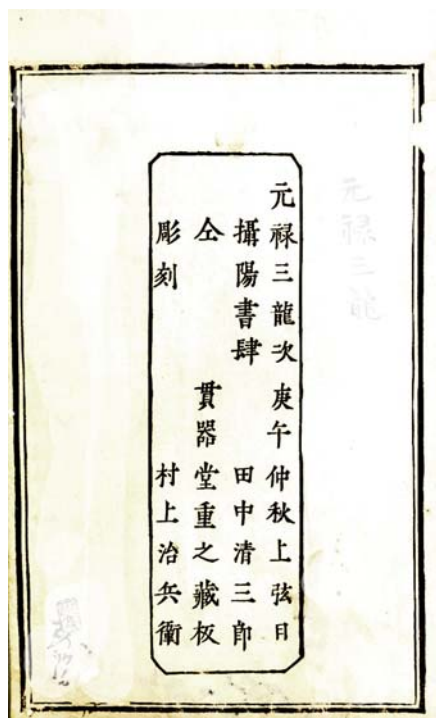 元禄三龍次庚午仲秋上弦日
攝陽書肆 田中清三郎
仝 貫器堂重之藏板
彫刻 村上治兵衛
元禄三龍